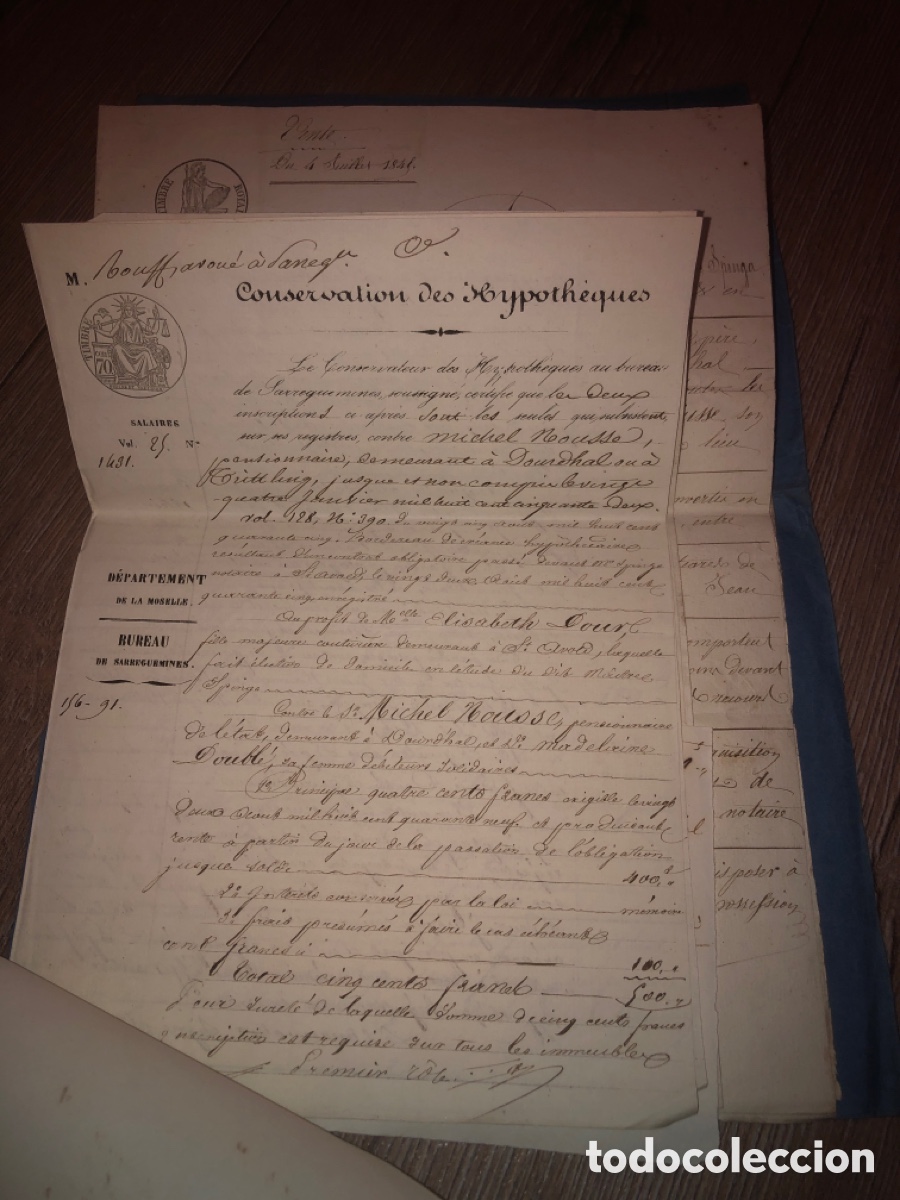 Vente.
Du 4 Juillet 1845.
TIMBRE ROYAL
M. Rouff avoué à
Conservation des Hypothèques
TIMBRE
70
SALAIRES
Vol. 25. N°
1431.
Le Conservateur des Hypothèques au bureau
de Sarreguemines, soussigné, certifie que les Deux
inscriptions ci-après sont les seules qui subsistent,
sur ses registres, contre Michel Housse,
pensionnaire, demeurant à Dourdhal ou à
jusques et non compris le vingt
quatre Janvier mil huit cent cinquante deux.
vol. 128, N°. 390 du vingt cinq août mil huit cent
quarante cinq, Bordereau de créance hypothécaire
résultant d'un contrat obligatoire passé devant Me Spinga
notaire à St avold, le vingt deux août mil huit cent
quarante cinq, enregistré
DÉPARTEMENT
DE LA MOSELLE.
BUREAU
DE SARREGUEMINES.
Au profit de Melle Elisabeth Dour,
fille majeure couturière demeurant à St Avold, laquelle
fait élection de domicile en l'étude du dit Maître
Spinga
156-91.
Contre le Sr Michel Housse, pensionnaire
de l'état, demeurant à Dourdhal, et De Madelaine
Doublé, sa femme débiteurs solidaires
1° Principal quatre cents francs exigible le vingt
deux août mil huit cent quarante neuf et produisant
rente à partir du jour de la passation de l'obligation
jusque solde 400,"
2° Intérêts conservés par la loi mémoire
3° frais présumés à faire le cas échéant
cent francs ci 100,"
Total cinq cents francs 500,"
Pour sureté de laquelle somme de cinq cents francs
inscription est requise sur tous les immeubles
Premier rôle
Spinga
entre
Jean
comportent
devant
de
notaire
possession
todocoleccion